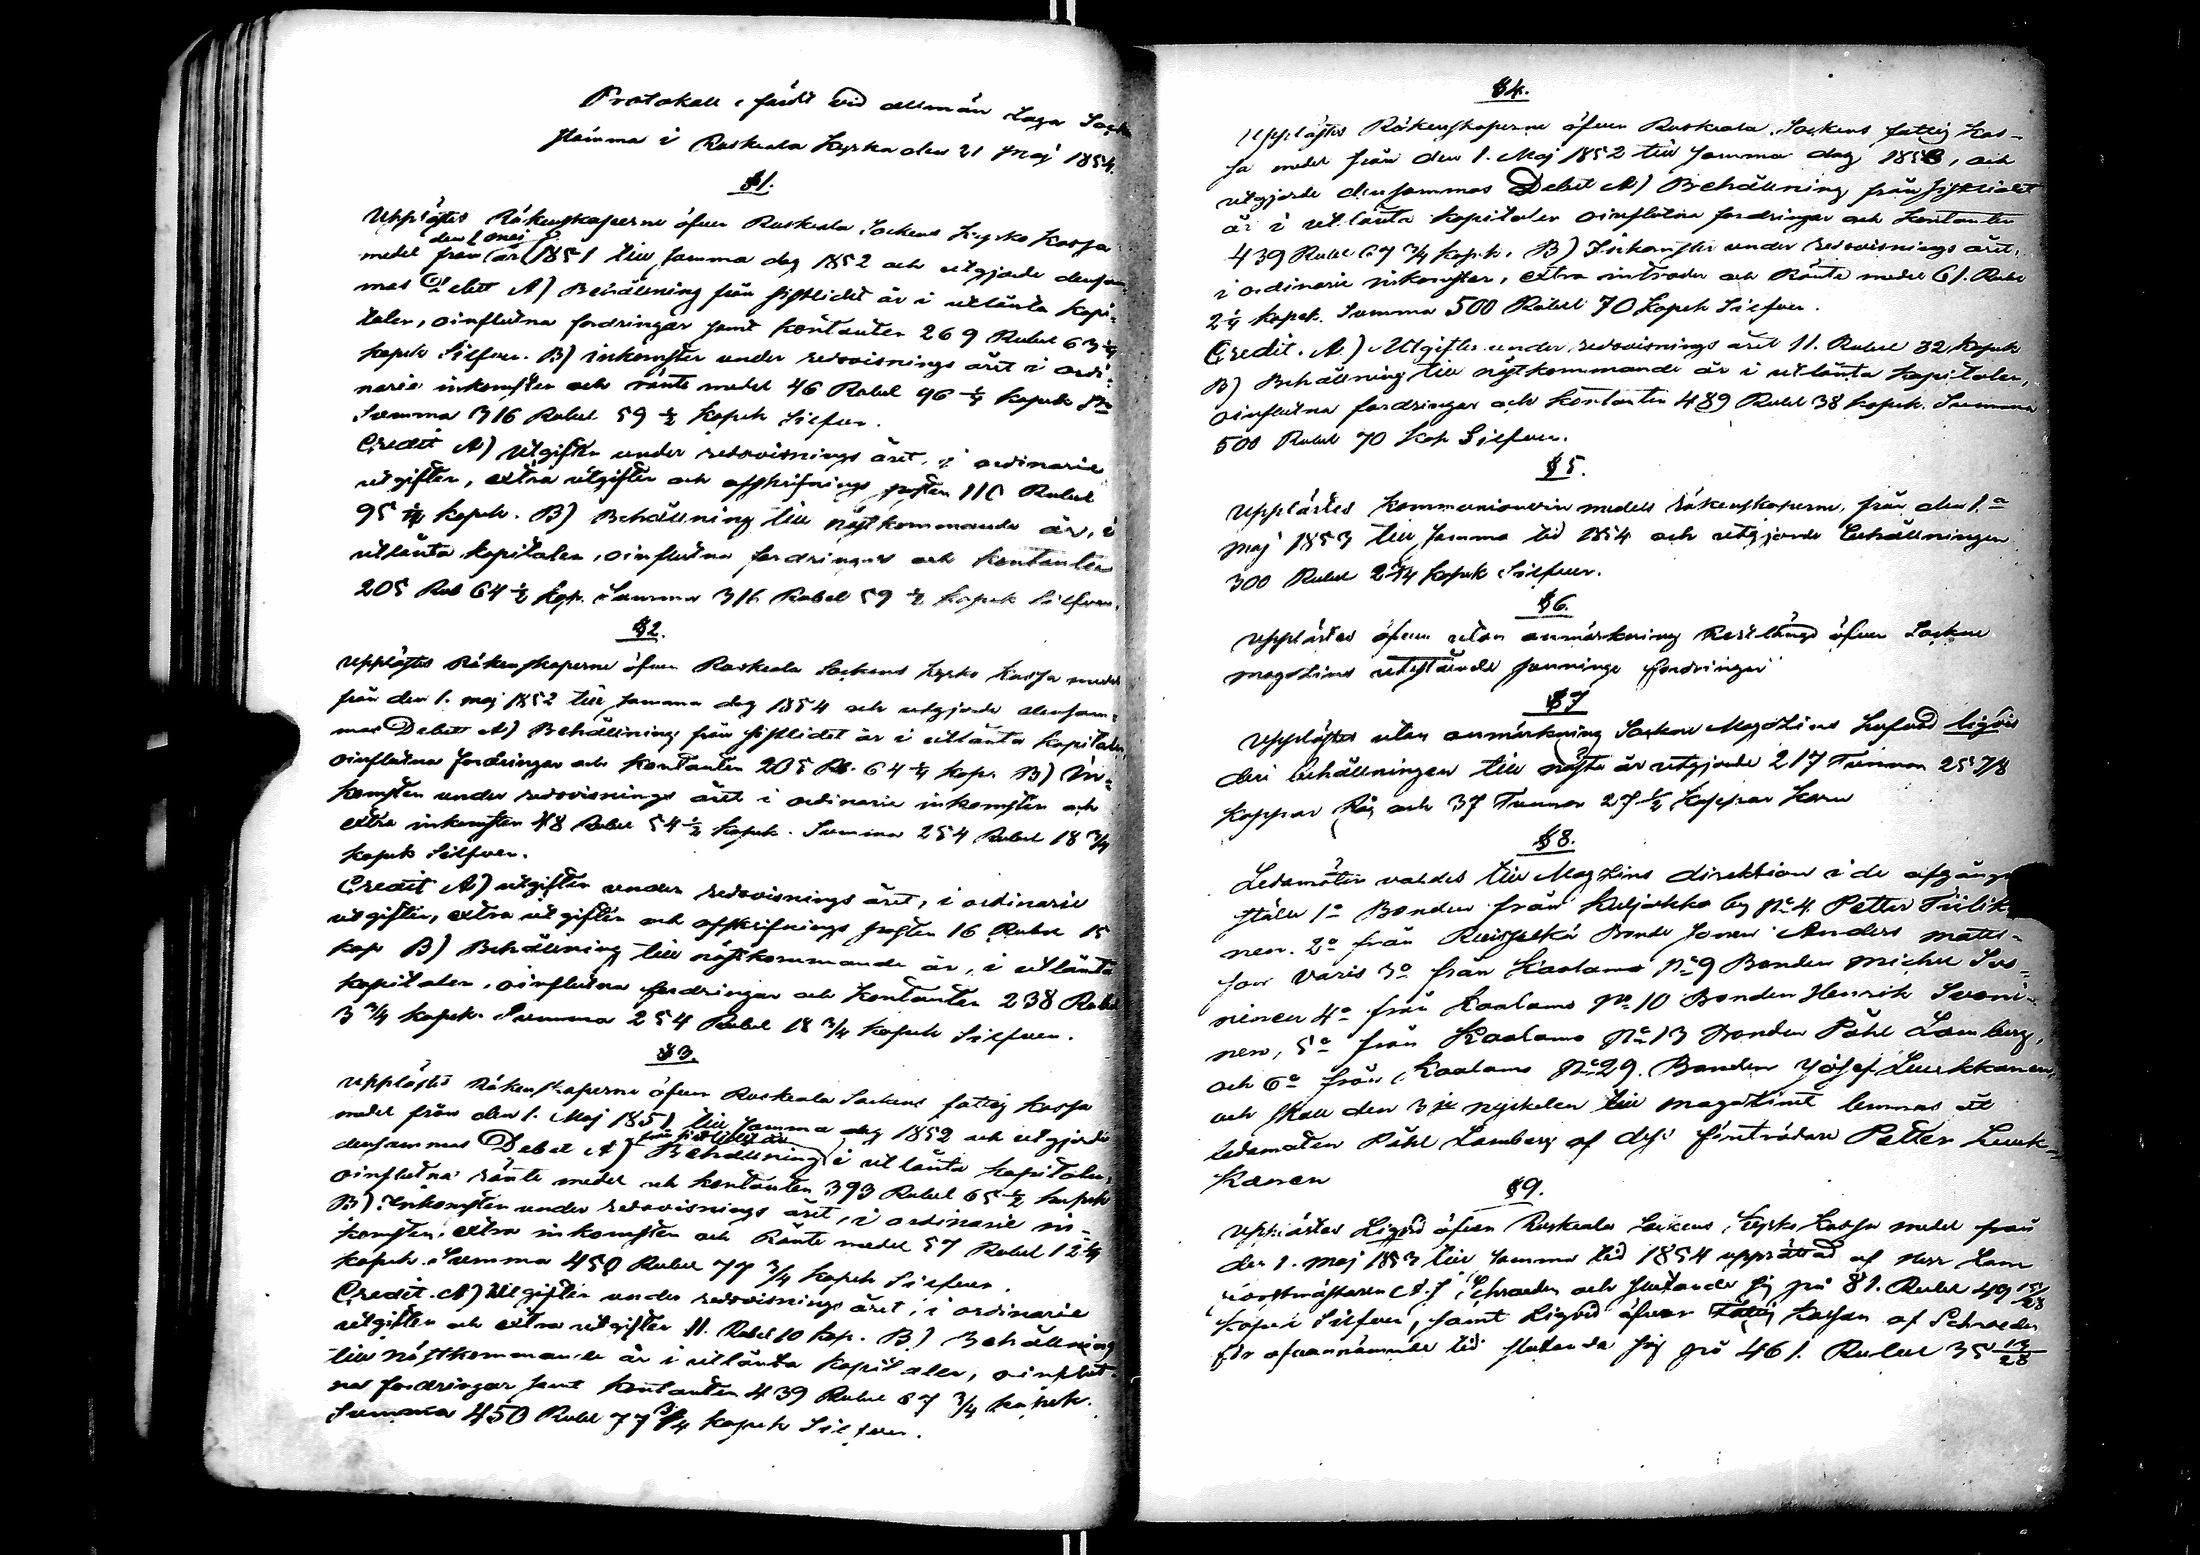 Protokoll, fördt vid allmän Laga Sockne
stämma i Ruskeala Kyrka den 21 Maj 1854.
§1.
Upplästes Räkenskaperne öfver Ruskeala Sockens Kyrko Kassa
den 1 maj
medel från år 1851 till samma dag 1852 och utgjorde densam-
mas Debet A) Behållning från sistlidet år i utlånta kapi-
taler, oinflutna fordringar samt kontanter 269 Rubel 63 ¼
kopek Silfver. B) inkomster under redovisnings året i ordi-
narie inkomster och ränte medel 46 Rubel 96 ¼ kopek
Summa 316 Rubel 59 ½ kopek Silfver.
Credit A) utgifter under redovisnings året, i ordinarie
utgifter, extra utgifter och afskrifnings poster 110 Rubel
95 kopek. B) Behållning till nästkommande år, i
utlånta kapitaler, oinflutna fordringar och kontanter
205 Rub 64 ½ kop. Summa 316 Rubel 59 ½ kopek Silfver.
§2.
Upplästes Räkenskaperne öfver Ruskeala Sockens Kyrko Kassa medel
från den 1. maj 1852 till samma dag 1854 och utgjorde densam-
mas Debet A) Behållning från sistlidet år i utlånta kapitaler,
oinflutna fordringar och kontanter 205 Rb. 64 ¼ kop. B) In-
komster under redovisnings året i ordinarie inkomster och
extra inkomster 48 Rubel 54 ½ kopek. Summa 254 Rubel 18 3/4
kopek Silfver.
Credit A) utgifter under redovisnings året, i ordinarie
utgifter, extra utgifter och afskrifnings poster 16 Rubel 15
kop B) Behållning till nästkommande år, i utlånta
kapitaler, oinflutna fordringar och kontanter 238 Rubel
3 3/4 kopek. Summa 254 Rubel 18 3/4 kopek Silfver.
§3.
Upplästes Räkenskaperne öfver Ruskeala Sockens fattig kassa
medel från den 1. Maj 1851 till samma dag 1852 och utgjorde
från sistlidet år
densammas Debet A) Behållning i utlånta kapitaler,
oinflutna ränte medel och kontanter 393 Rubel 65 ½ kopek
B) Inkomster under redovisnings året, i ordinarie in-
komster, extra inkomster och Ränte medel 57 Rubel 12 ¼
kopek. Summa 450 Rubel 77 3/4 kopek Silfver.
Credit. A) Utgifter under redovisnings året, i ordinarie
utgifter och extra utgifter 11. Rubel 10 kop. B) Behållning
till nästkommande år i utlånta kapitaler, oinflut-
na fordringar samt kontanter 439 Rubel 67 3/4 kopek.
Summa 450 Rubel 77 3/4 kopek Silfver.
§4.
Upplästes Räkenskaperne öfver Ruskeala Sockens fattig kas-
sa medel från den 1. Maj 1852 till samma dag 1853, och
utgjorde densammas Debet A) Behållning från sistlidet
år i utlånta kapitaler oinflutna fordringar och kontanter
439 Rubel 67 3/4 kopek. B) Inkomster under redovisnings året,
i ordinarie inkomster, extra intrader och Ränte medel 61. Rubel
2 ¼ kopek. Summa 500 Rubel 70 kopek Silfver.
Credit. A.) Utgifter under redovisnings året 11. Rubel 32 kopek
B) Behållning till nästkommande år i utlånta kapitaler,
oinflutna fordringar och kontanter 489 Rubel 38 kopek. Summa
500 Rubel 70 kop Silfver.
§5.
Upplästes kommunionvin medels räkenskaperne, från den 1.
maj 1853 till samma tid 1854 och utgjorde behållningen
300 Rubel kopek Silfver.
§6.
Upplästes äfven utan anmärkning Restlängd öfver Sockne
magazins utestående spannmåls fordringar
§7
Upplästes utan anmärkning Sockne Magazins
deri behållningen till nästa år utgjorde 217 Tunnor 25 7/8
kappar Råg och 37 Tunnor 27 ½ kappar Korn
§8.
Ledamöter valdes till Magazins direktion i de afgångnes
ställe 1o Bonden från Kuljakko by No 4 Petter Tiilik-
nen. 2o från Ruispelkä Bonde sonen Anders Matts-
son Varis 3o från Kaalamo No 9 Bonden Michel
ninen 4o från Kaalamo No 10 Bonden Henrik
nen, 5o från Kaalamo No 13 Bonden Påhl Lamberg,
och 6o från Kaalamo No 29. Bonden Josef Leukkanen,
och skall den 3je nyckelen till magazinet lemnas åt
ledamoten Påhl Lamberg af dess företrädare Petter Leuk-
kanen
§9.
Upplästes Ligvid öfver Ruskeala Sockens Kyrko Kassa medel från
den 1. maj 1853 till samma tid 1854 upprättad af Herr Lans
Schroeder och slutande sig på 81. Rubel 49 15/28
kopek Silfver, samt Ligvid öfver Fattig Kassan af Schroeder
för ofvannämnde tid slutande sig på 461. Rubel 35 13/28